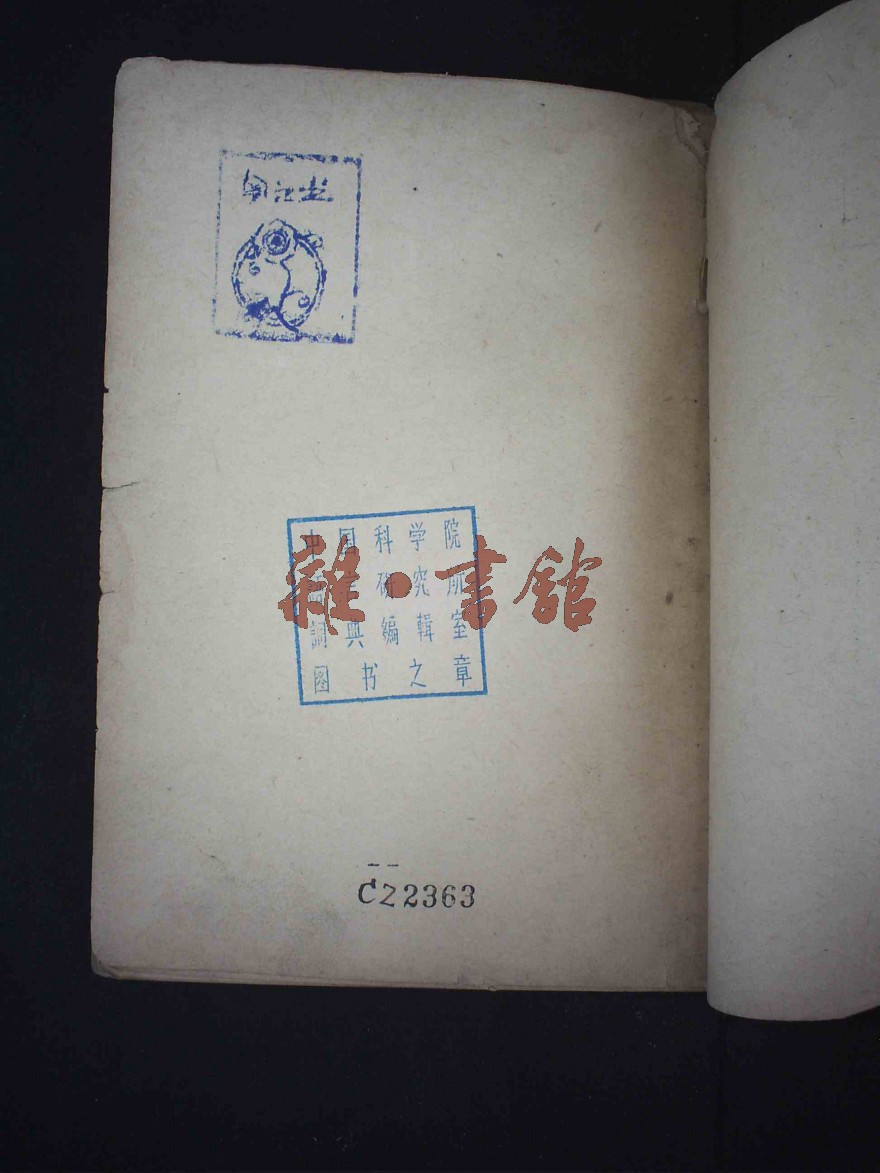 中国科学院
語言研究所
詞典編輯室
图书之章
雜·書館
CZ2363